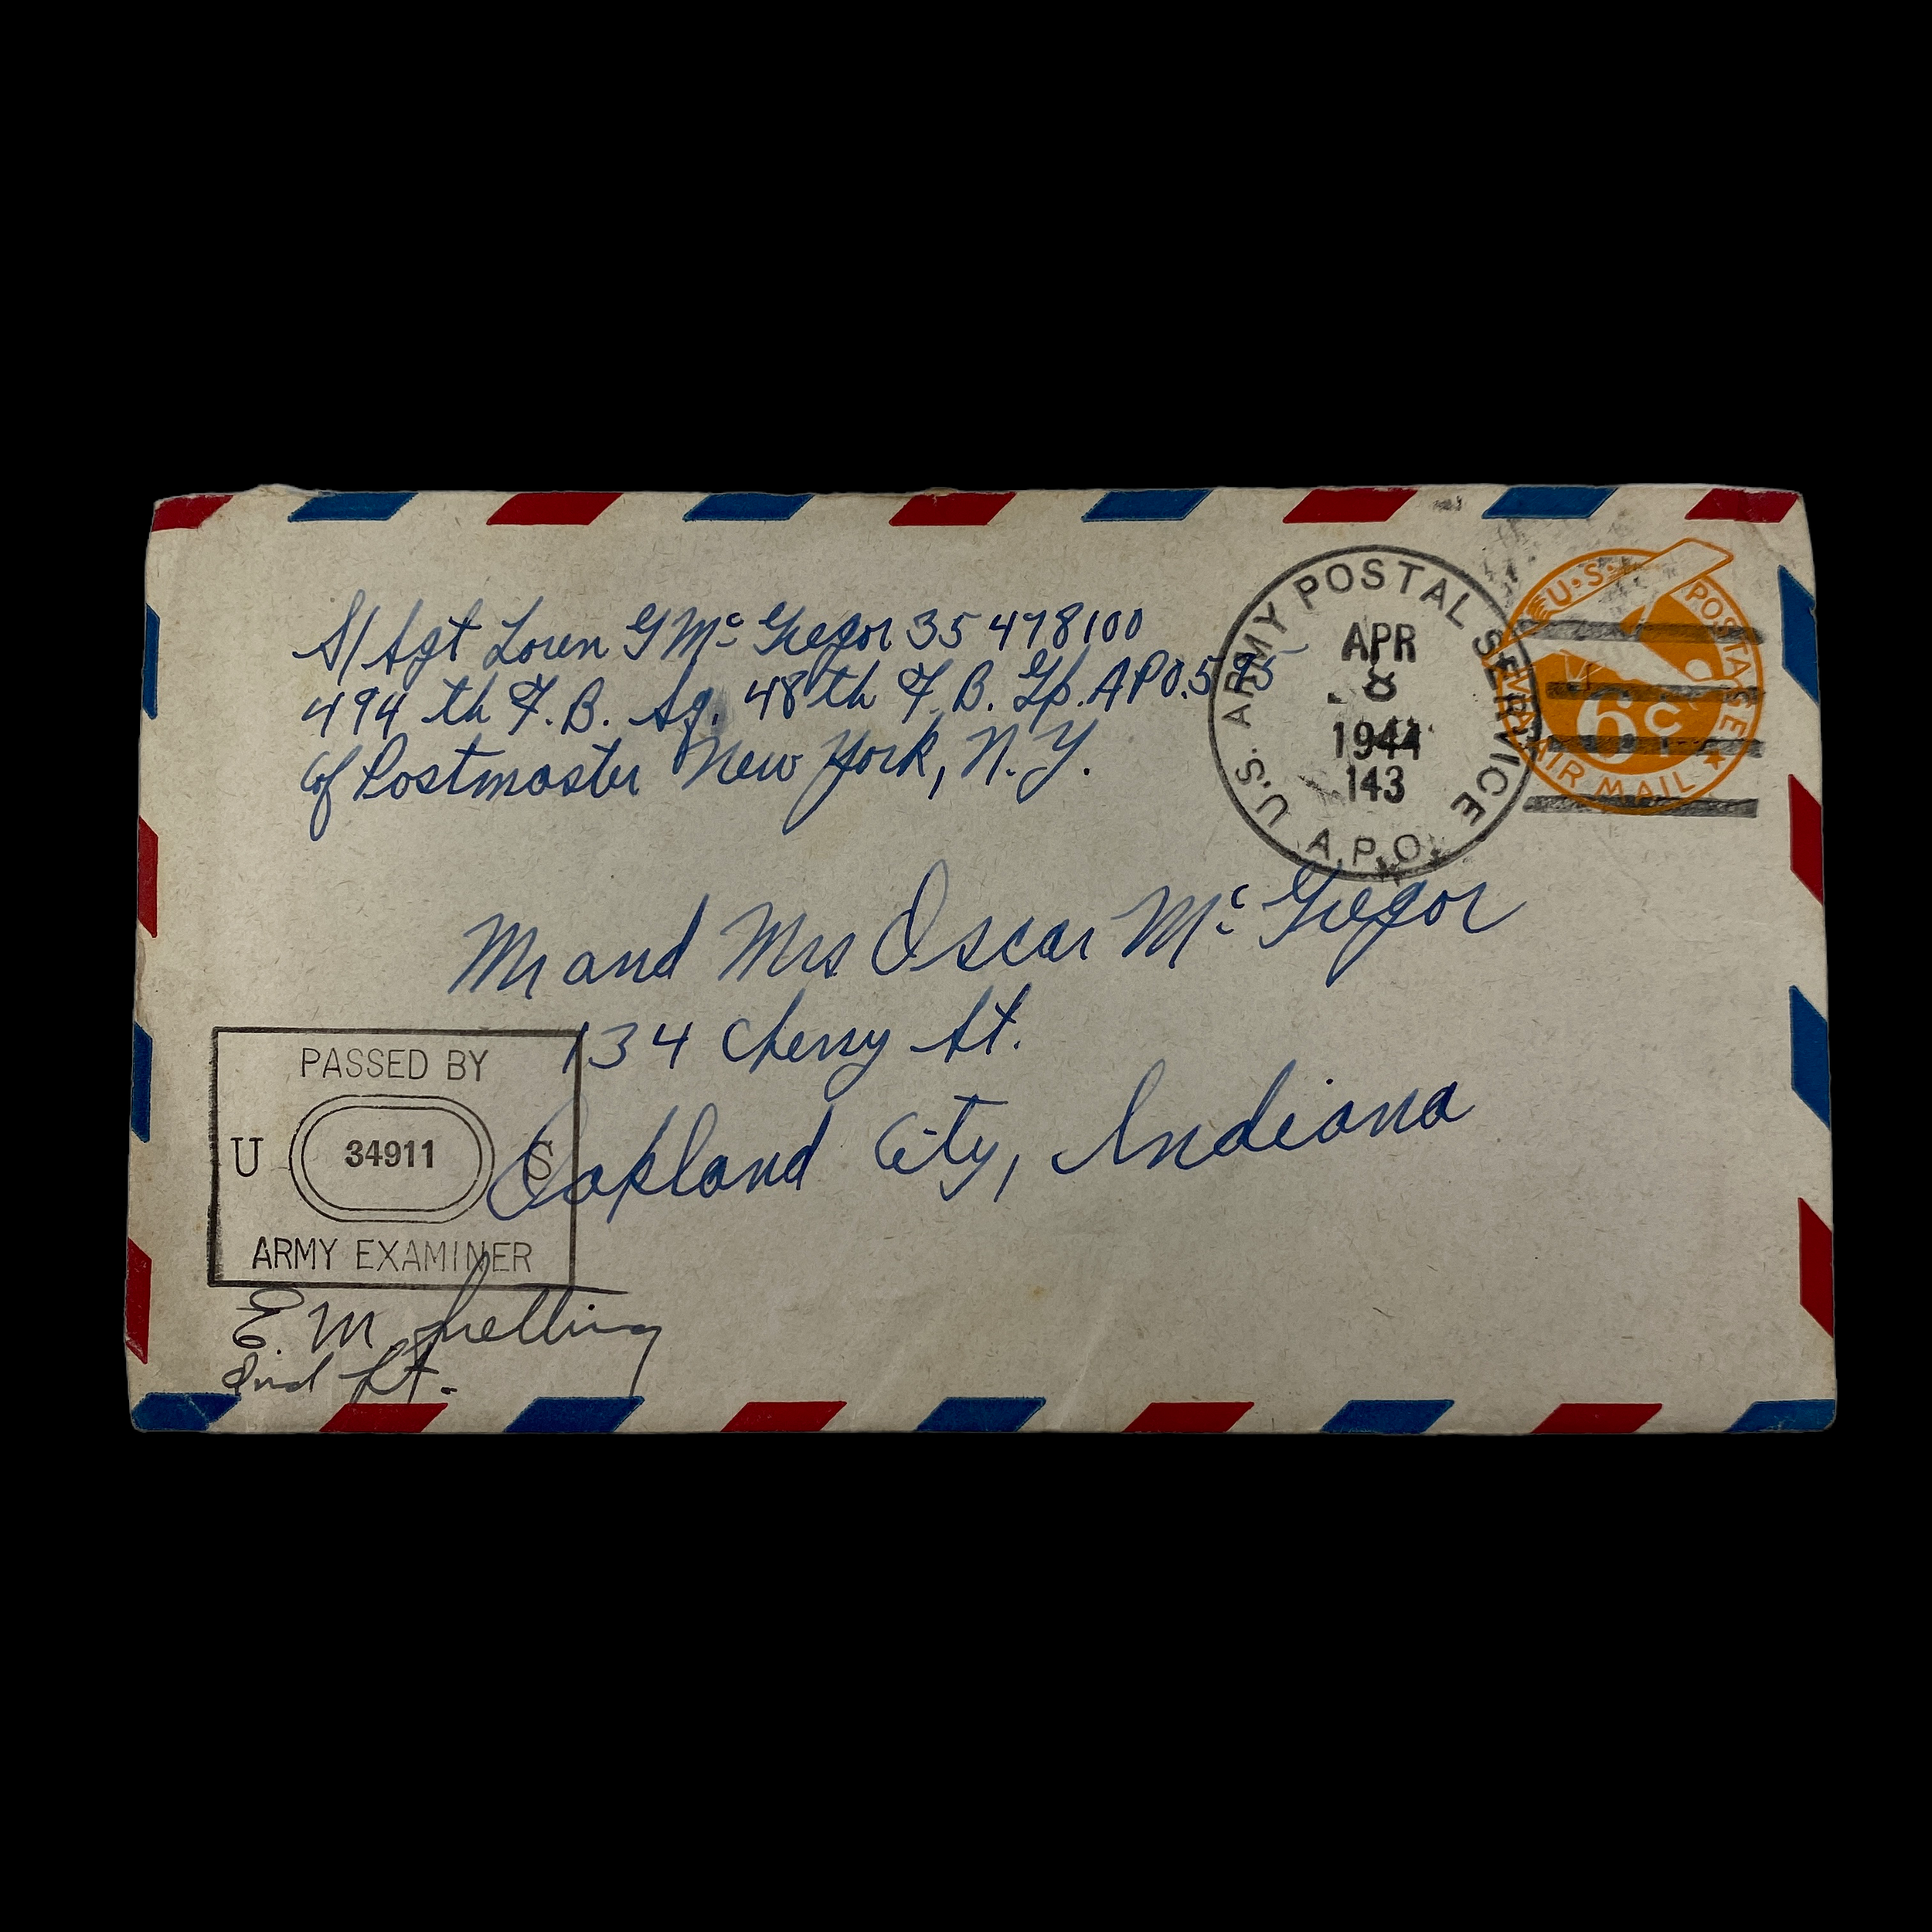 S/Sgt Loren G Mc Gregor 35 478100
494 th F.B. Sq. 48th F.B. Gp. APO.595
c/o Postmaster New York, N.Y.
U.S. ARMY POSTAL SERVICE
APR
8
1944
143
A.P.O.
U.S. POSTAGE
6c
VIA AIR MAIL
Mr and Mrs Oscar Mc Gregor
134 Cherry St.
Oakland City, Indiana
PASSED BY
U 34911 S
ARMY EXAMINER
E. M.
2nd Lt.